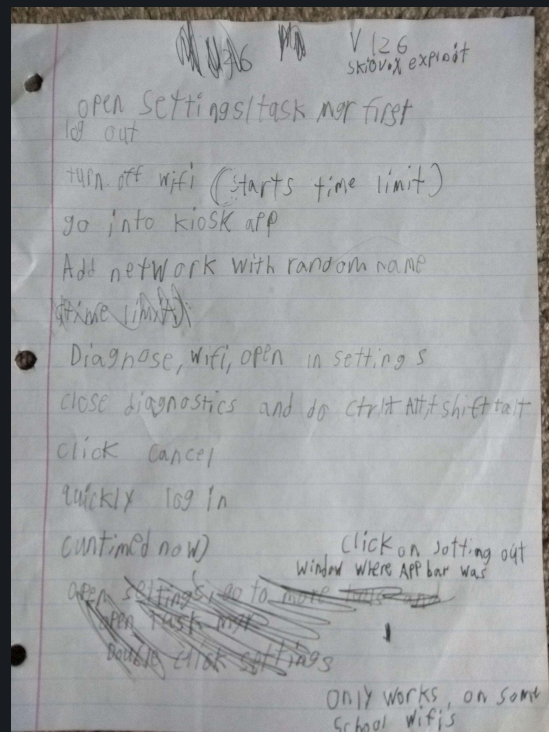 V 126
skiovox exploit
open settings/task mgr first
log out
turn off wifi (starts time limit)
go into kiosk app
Add network with random name
Diagnose, wifi, open in settings
close diagnostics and do ctrl+Alt+shift+
click cancel
quickly log in
(untimed now)
click on jotting out
window where App bar was
open settings, go to more
open task mgr
Double click settings
only works, on some
school wifis